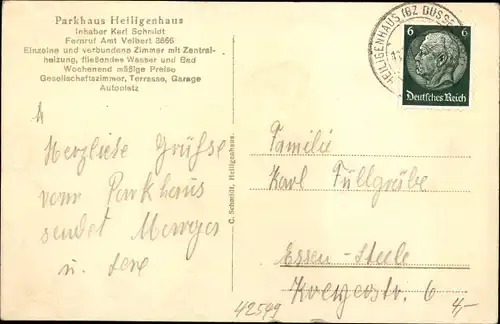 Parkhaus Heiligenhaus
Inhaber Karl Schmidt
Fernruf Amt Velbert 3866
Einzelne und verbundene Zimmer mit Zentral-
heizung, fließendes Wasser und Bad
Wochenend mäßige Preise
Gesellschaftszimmer, Terrasse, Garage
Autoplatz
HEILIGENHAUS (BZ DÜSSE
6 6
Deutsches Reich
Herzliche Grüße
vom Parkhaus
sendet
u.
C. Schmidt, Heiligenhaus.
Familie
Karl Füllgräbe
Essen-Steele
6
42549
4,-